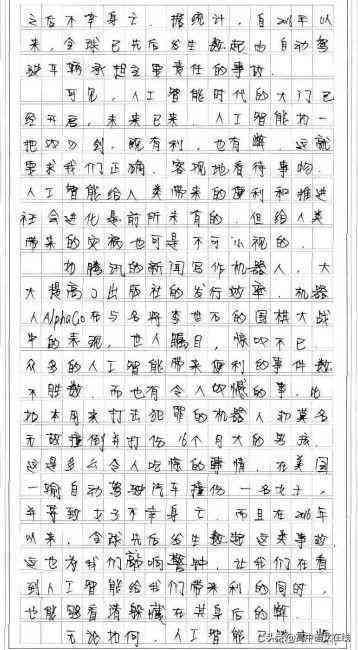 之后不幸身亡。据统计,自2016年以
来,全球已先后发生数起由自动驾
驶车辆承担主要责任的事故。
可见,人工智能时代的大门已
经开启,未来已来。人工智能如一
把双刃剑,既有利,也有弊,这就
要求我们正确、客观地看待事物。
人工智能给人类带来的便利和推进
社会进化是前所未有的,但给人类
带来的灾祸也可是不可小视的。
如腾讯的新闻写作机器人,大
大提高了出版社的发行效率,机器
人AlphaGo在与名将李世石的围棋大战
中的表现,世人瞩目,惊叹不已
众多的人工智能带来便利的事件数
不胜数,而也有令人叹憾的事,比
如本用来打击犯罪的机器人却莫名
无故撞倒并打伤16个月大的男孩,
这是多么令人吃惊的事情,在美国
一辆自动驾驶汽车撞伤一名女子,
并导致女子不幸身亡,而且在2016年
以来,全球先后发生数起这类事故,
这也为我们敲响警钟,让我们在看
到人工智能给我们带来利的同时,
也能够看清躲藏在其身后的弊。
无论如何,人工智能已
头条@高中语文在线